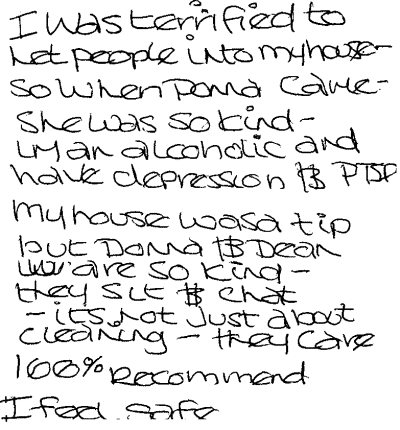 I was terrified to
let people into my house -
so when Donna came -
She was so kind -
I'm an alcoholic and
have depression & PTSD
My house was a tip
but Donna & Dean
are so kind -
they sit & chat
- its not just about
cleaning - they care
100% Recommend
I feel safe